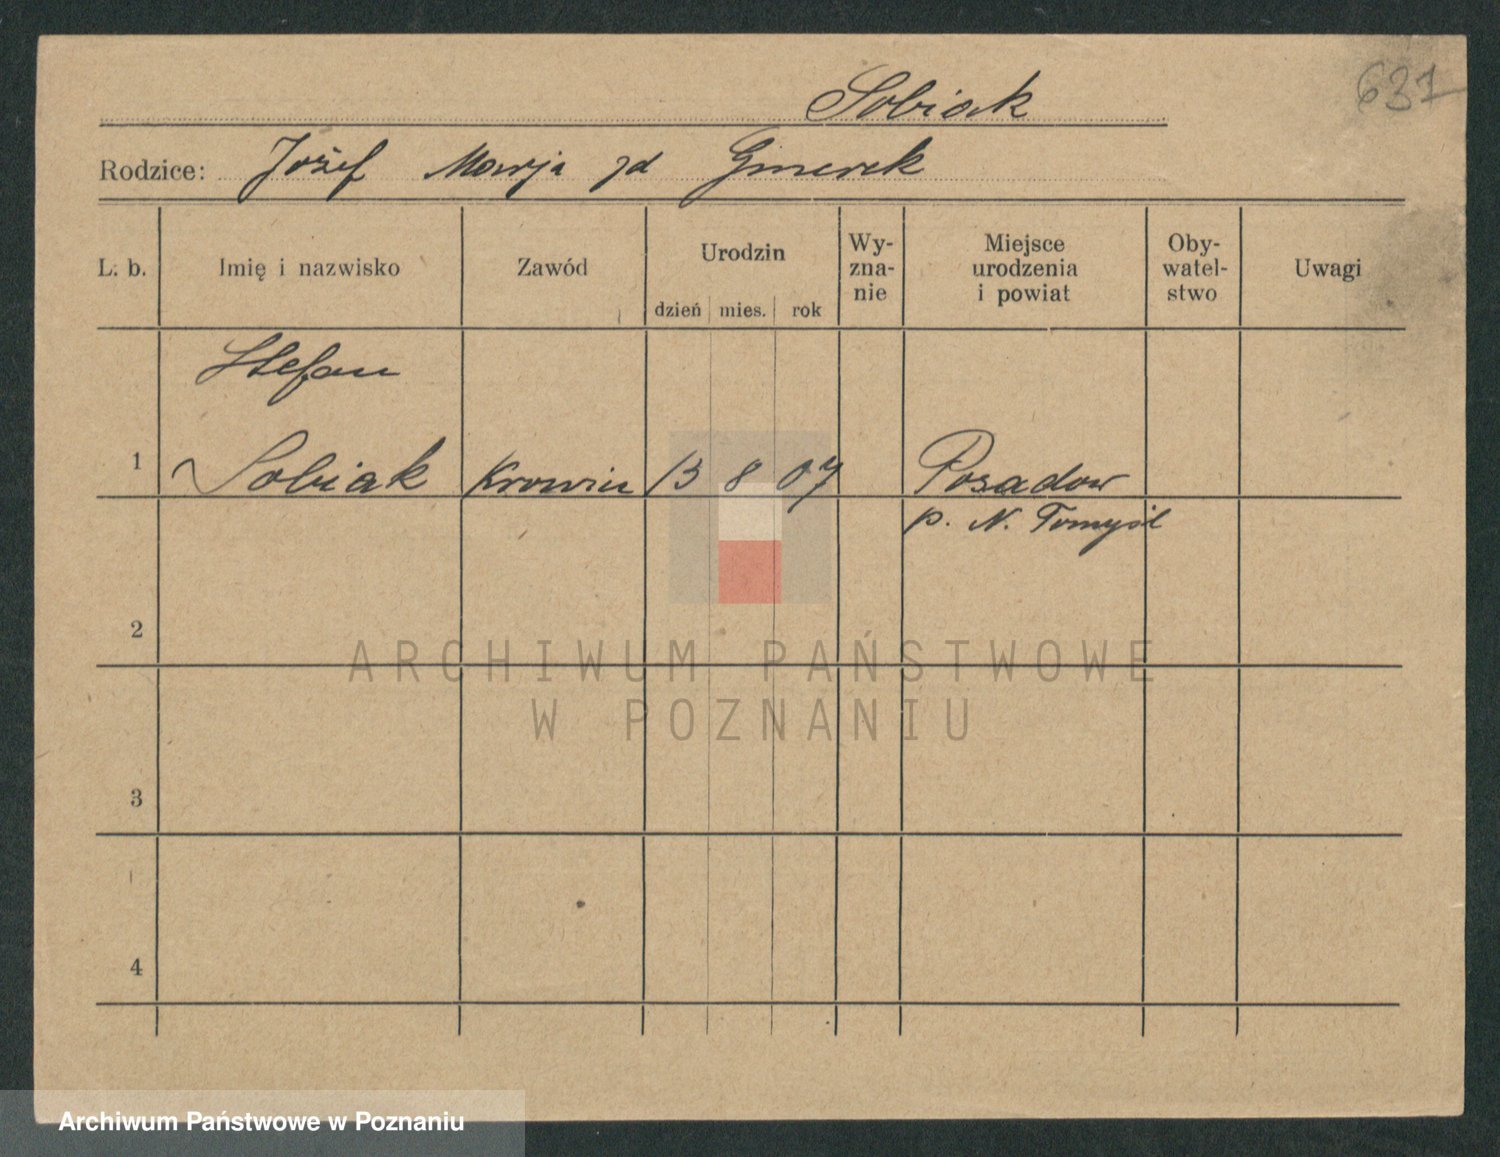 Sobiak
637
Rodzice: Józef Marja zd Gmerek
L. b. Imię i nazwisko Zawód Urodzin dzień mies. rok Wy-zna-nie Miejsce urodzenia i powiat Oby-watel-stwo Uwagi
Stefan
1 Sobiak 13 8 07 Posadow
p. N. Tomyśl
2
3
4
ARCHIWUM PAŃSTWOWE
W POZNANIU
Archiwum Państwowe w Poznaniu